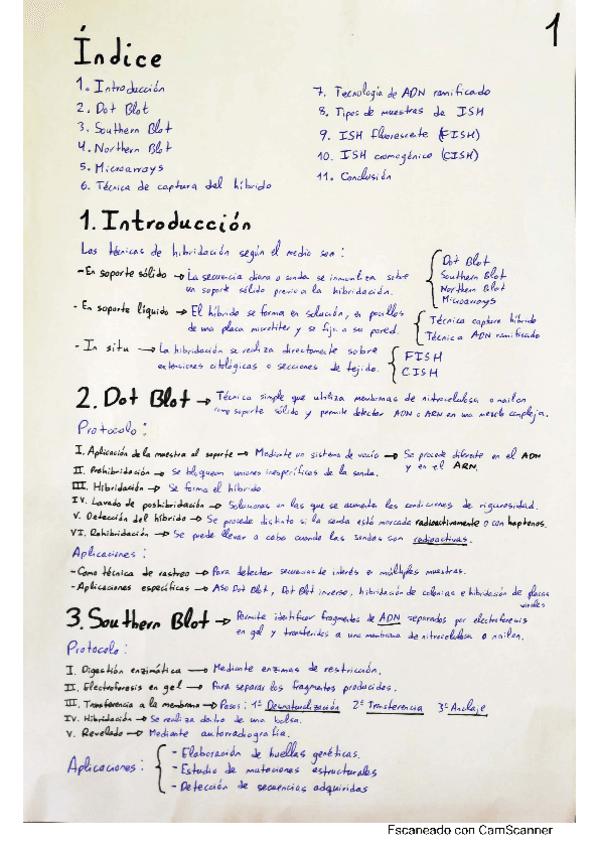 1
Índice
1. Introducción
2. Dot Blot
3. Southern Blot
4. Northern Blot
5. Microarrays
6. Técnica de captura del híbrido
7. Tecnología de ADN ramificado
8. Tipos de muestras de ISH
9. ISH fluorescente (FISH)
10. ISH cromogénico (CISH)
11. Conclusión
1. Introducción
Las técnicas de hibridación según el medio son:
- En soporte sólido → La secuencia diana o sonda se inmoviliza sobre
un soporte sólido previo a la hibridación.
Dot Blot
Southern Blot
Northern Blot
Microarrays
- En soporte líquido → El híbrido se forma en solución, en pocillos
de una placa microtiter y se fija a su pared.
Técnica captura híbrido
Técnica ADN ramificado
- In situ → La hibridación se realiza directamente sobre
extensiones citológicas o secciones de tejido.
FISH
CISH
2. Dot Blot → Técnica simple que utiliza membranas de nitrocelulosa o nailon
como soporte sólido y permite detectar ADN o ARN en una mezcla compleja.
Protocolo:
I. Aplicación de la muestra al soporte → Mediante un sistema de vacío → Se procede diferente en el ADN
y en el ARN.
II. Prehibridación → Se bloquean uniones inespecíficas de la sonda.
III. Hibridación → Se forma el híbrido
IV. Lavado de poshibridación → Soluciones en las que se aumenta las condiciones de rigurosidad.
V. Detección del híbrido → Se procede distinto si la sonda está marcada radioactivamente o con haptenos.
VI. Rehibridación → Se puede llevar a cabo cuando las sondas son radioactivas.
Aplicaciones:
- Como técnica de rastreo → Para detectar secuencias de interés en múltiples muestras.
- Aplicaciones específicas → Aso Dot Blot, Dot Blot inverso, hibridación de colonias e hibridación de placas
virales
3. Southern Blot → Permite identificar fragmentos de ADN separados por electroforesis
en gel y transferidos a una membrana de nitrocelulosa o nailon.
Protocolo:
I. Digestión enzimática → Mediante enzimas de restricción.
II. Electroforesis en gel → Para separar los fragmentos producidos.
III. Transferencia a la membrana → Pasos: 1º Desnaturalización 2º Transferencia 3º Anclaje
IV. Hibridación → Se realiza dentro de una bolsa.
V. Revelado → Mediante autorradiografía.
Aplicaciones:
- Elaboración de huellas genéticas.
- Estudio de mutaciones estructurales
- Detección de secuencias adquiridas
Escaneado con CamScanner